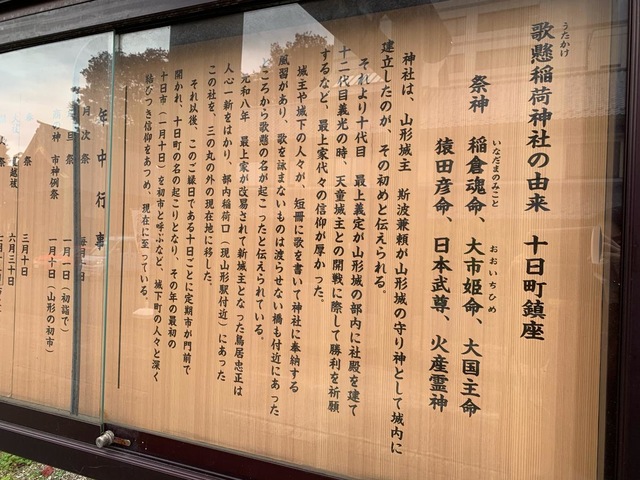 うたかけ
歌懸稲荷神社の由来 十日町鎮座
いなだまのみこと おおいちひめ
祭神 稲倉魂命、大市姫命、大国主命
猿田彦命、日本武尊、火産霊神
神社は、山形城主 斯波兼頼が山形城の守り神として城内に
建立したのが、その初めと伝えられる。
それより十代目 最上義定が山形城の部内に社殿を建て
十二代目義光の時、天童城主との開戦に際して勝利を祈願
するなど、最上家代々の信仰が厚かった。
城主や城下の人々が、短冊に歌を書いて神社に奉納する
風習があり、歌を詠まないものは渡らせない橋も付近にあった
ころから歌懸の名が起こったと伝えられている。
元和八年 最上家が改易されて新城主となった鳥居忠正は
人心一新をはかり、部内稲荷口（現山形駅付近）にあった
この社を、三の丸の外の現在地に移した。
それ以後、このご縁日である十日ごとに定期市が門前で
開かれ、十日町の名の起こりとなり、その年の最初の
十日市（一月十日）を初市と呼ぶなど、城下町の人々と深く
結びつき信仰をあつめ、現在に至っている。
年中行事
月次祭 毎月
旦祭 一月一日（初詣で）
神 市神例祭 一月十日（山形の初市）
祭 三月十日
越祓 六月三十日